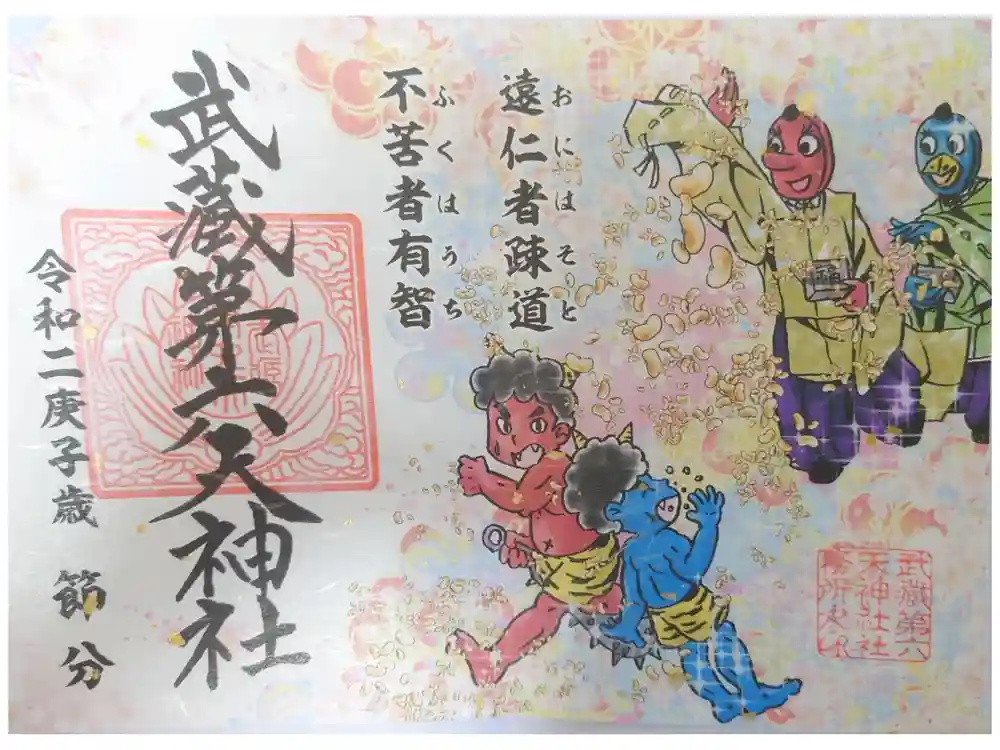 遠仁者疎道
おにはそと
不苦者有智
ふくはうち
武蔵第六天神社
令和二庚子歳 節分
武蔵第六
天神社社
務所之印